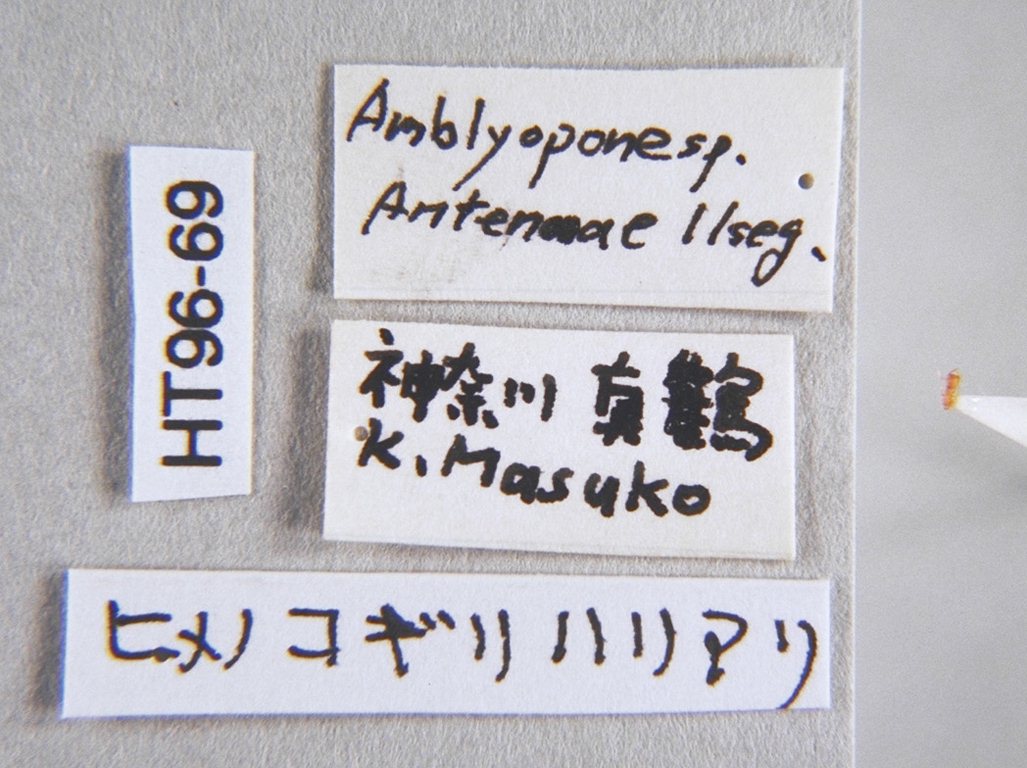 HT96-69
Amblyopone sp.
Antennae 11seg.
神奈川 真鶴
K. Masuko
ヒメノコギリハリアリ